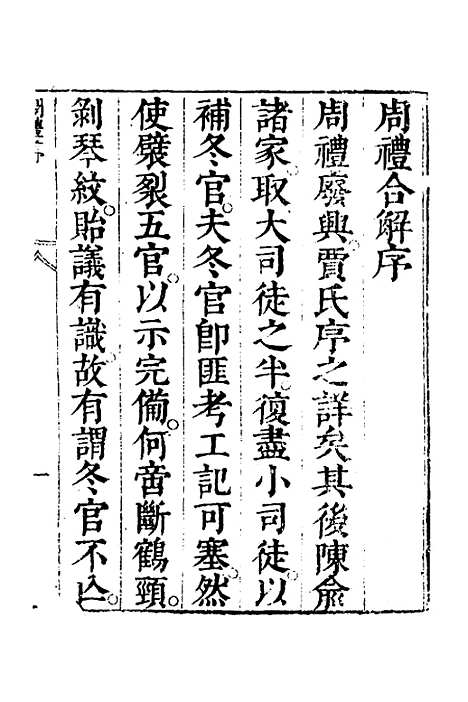 周禮合解序
周禮廢興賈氏序之詳矣其後陳俞
諸家取大司徒之半復盡小司徒以
補冬官夫冬官卽匪考工記可塞然
使襞裂五官以示完備何啻斷鶴頸
剝琴紋貽議有識故有謂冬官不亾
周禮序
一